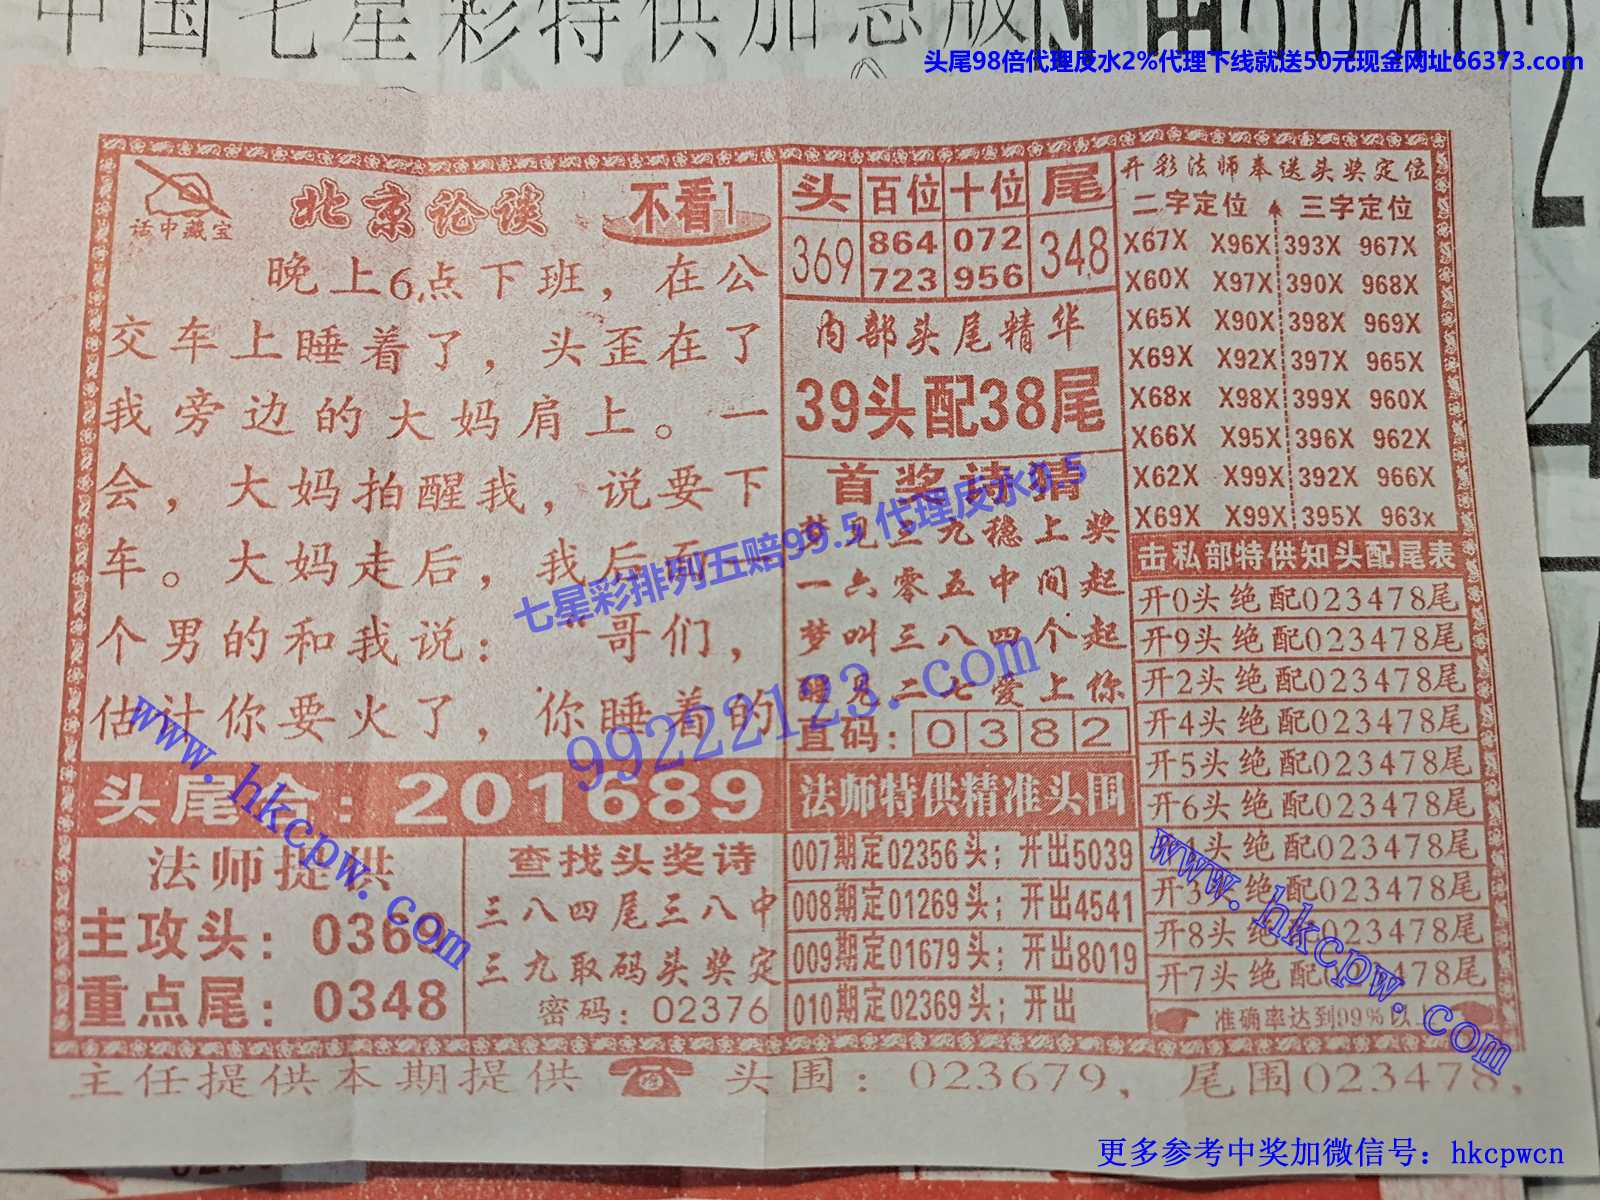 中国七星彩特供加急版
头尾98倍代理反水2%代理下线就送50元现金网址66373.com
话中藏宝
北京论谈
不看1
晚上6点下班，在公
交车上睡着了，头歪在了
我旁边的大妈肩上。一
会，大妈拍醒我，说要下
车。大妈走后，我后面一
个男的和我说：“哥们，
估计你要火了，你睡着的
头尾合：201689
法师提供
主攻头：036
重点尾：0348
查找头奖诗
三八四尾三八中
三九取码头奖定
密码：02376
头 百位 十位 尾
369 864 072 348
723 956
内部头尾精华
39头配38尾
首奖诗猜
梦见三九稳上奖
一六零五中间起
梦叫三八四个起
醒见二七爱上你
直码：0 3 8 2
法师特供精准头围
007期定02356头；开出5039
008期定01269头；开出4541
009期定01679头；开出8019
010期定02369头；开出
开彩法师奉送头奖定位
二字定位 三字定位
X67X X96X 393X 967X
X60X X97X 390X 968X
X65X X90X 398X 969X
X69X X92X 397X 965X
X68x X98X 399X 960X
X66X X95X 396X 962X
X62X X99X 392X 966X
X69X X99X 395X 963x
击私部特供知头配尾表
开0头绝配023478尾
开9头绝配023478尾
开2头绝配023478尾
开4头绝配023478尾
开5头绝配023478尾
开6头绝配023478尾
开1头绝配023478尾
开3头绝配023478尾
开8头绝配023478尾
开7头绝配023478尾
准确率达到99%以上
主任提供本期提供 头围：023679，尾围023478，
七星彩排列五赔99.5代理反水0.5
99222123.com
www.hkcpw.com
www.hkcpw.com
更多参考中奖加微信号：hkcpwcn